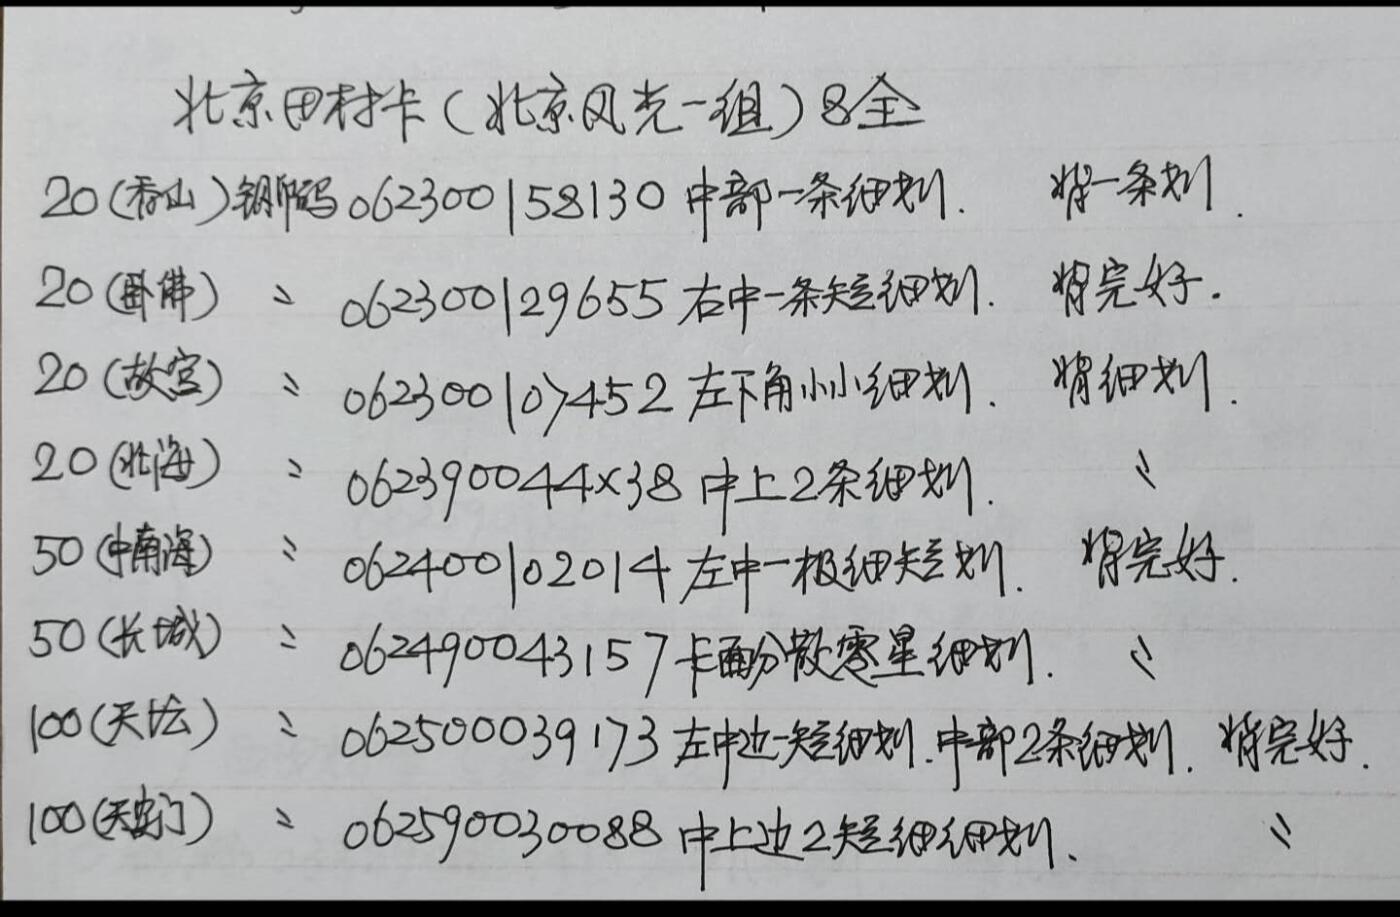 北京田村卡(北京风光一组)8全
20(香山)钢印码062300158130中部一条细划. 背一条划.
20(卧佛) 〃 062300129655右中一条短细划. 背完好.
20(故宫) 〃 062300107452左下角小小细划. 背细划.
20(北海) 〃 062390044x38中上2条细划. 〃
50(中南海) 〃 062400102014左中一极细短划. 背完好.
50(长城) 〃 062490043157卡面分散零星细划. 〃
100(天坛) 〃 062500039173左中边一短细划.中部2条细划. 背完好.
100(天安门) 〃 062590030088中上边2短细细划. 〃